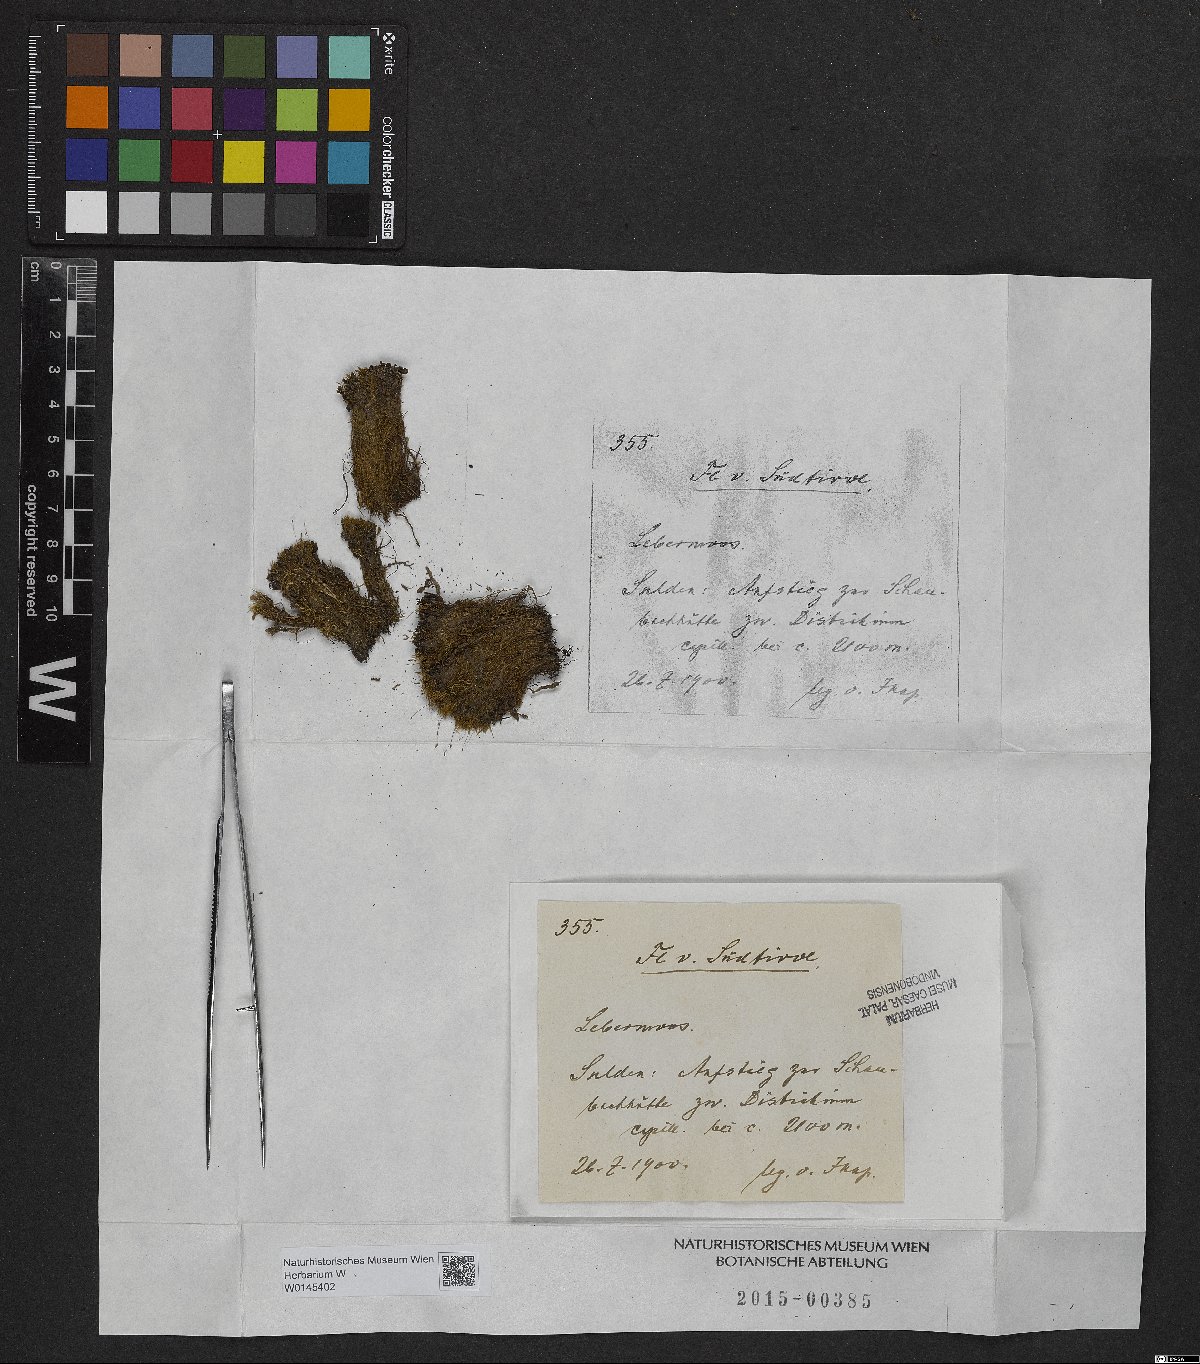 x-rite
colorchecker
CLASSIC
cm
0 1 2 3 4 5 6 7 8 9 10
copyright reserved
W
355.
Fl v. Südtirol.
Lebermoos.
Sulden: Aufstieg zur Schau-
bachhütte zw. Distichium
capill. bei c. 2100 m.
26.7.1900. leg. v.
355.
Fl v. Südtirol.
Lebermoos.
Sulden: Aufstieg zur Schau-
bachhütte zw. Distichium
capill. bei c. 2100 m.
26.7.1900. leg. v.
HERBARIUM
MUSEI CAESAR. PALAT.
VINDOBONENSIS
Naturhistorisches Museum Wien
Herbarium W
W0145402
NATURHISTORISCHES MUSEUM WIEN
BOTANISCHE ABTEILUNG
2015-00385